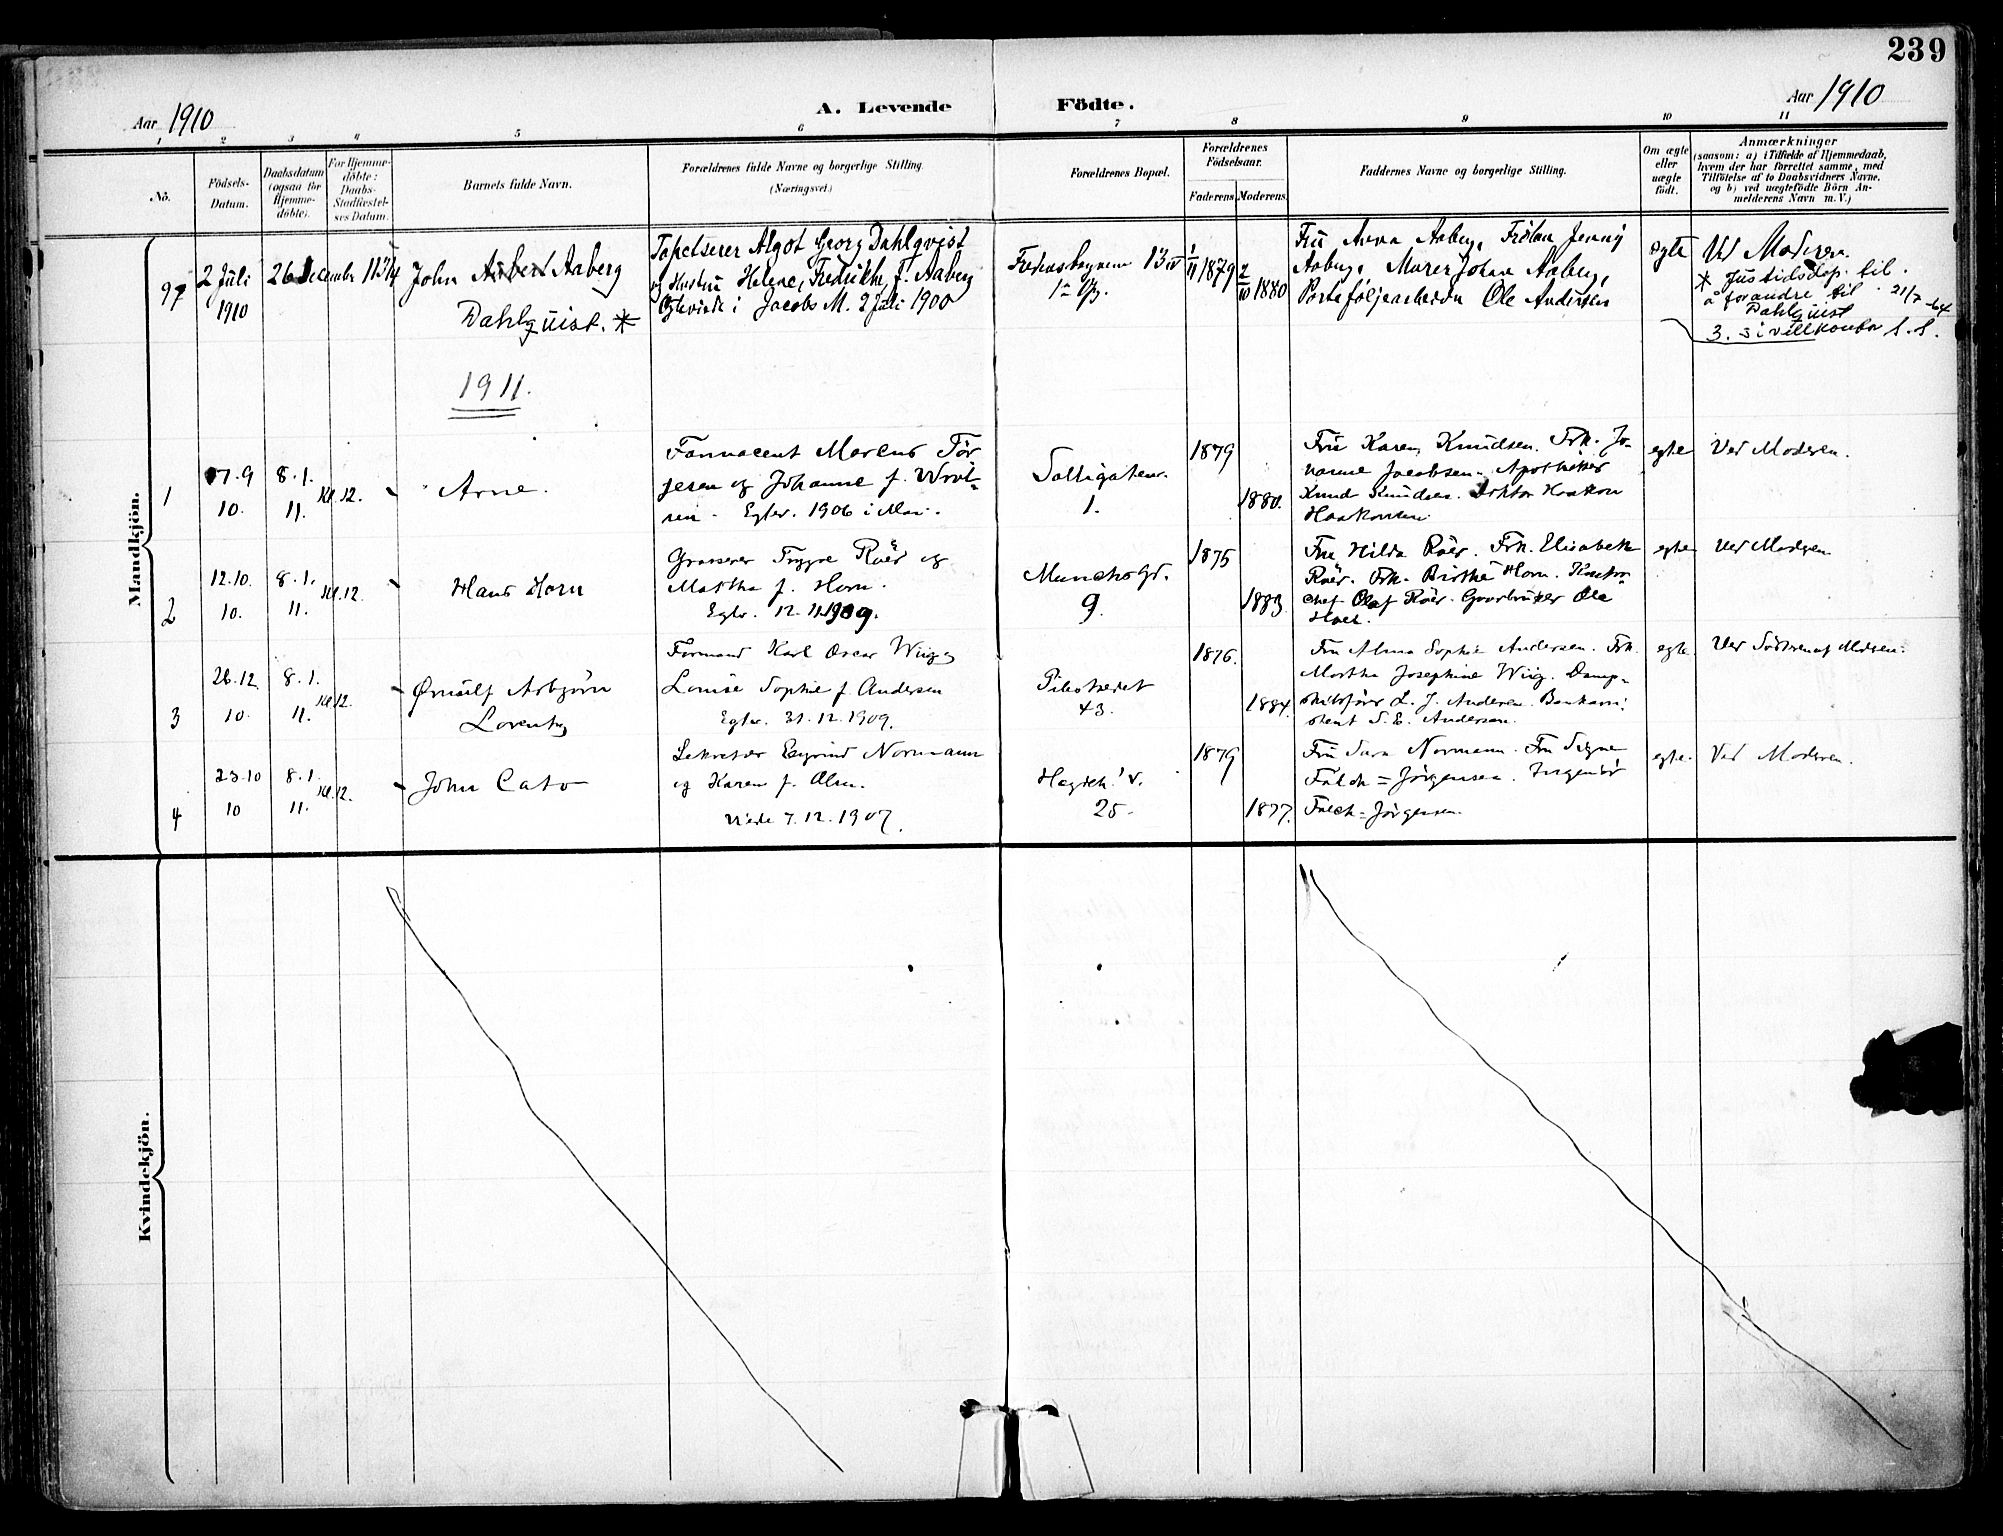 239
A. Levende Födte.
Aar 1910
Aar 1910
1 2 3 4 5 6 7 8 9 10 11
No.
Födsels-Datum.
Daabsdatum (ogsaa for Hjemme-døbte).
For Hjemme-døbte: Daabs-Stadfæstel-ses Datum.
Barnets fulde Navn.
Forældrenes fulde Navne og borgerlige Stilling.
(Næringsvei.)
Forældrenes Bopæl.
Forældrenes Födselsaar.
Faderens Moderens
Faddernes Navne og borgerlige Stilling.
Om ægte eller uægte født.
Anmærkninger
(saasom: a) i Tilfælde af Hjemmedaab,
hvem der har forrettet samme, med
Tilföielse af to Daabsvidners Navne,
og b) ved uægtefödte Börn An-
melderens Navn m. V.)
Mandkjön.
97
2 Juli
1910
26 December
John Aaberg
Dahlquist. *
Tapetserer Algot Georg Dahlqvist
og Hustru Helene, Fredrikke, f. Aaberg
Jacobs M. 2 Juli 1900
13 IV
1/11 1879
2/10 1880
Fru Anna Aaberg, Frøken Jenny
Aaberg, Murer Johan Aaberg,
Ole Andersen
egte
Ved Moderen.
* Justisdep. til.
å forandre til 21/7 -64
Dahlquist
3. sivilkontor
1911.
1
17.9
10.
8.1.
11.
Kl.12.
Arne.
Marcus Tör-
jesen og Johanne f.
Egtev. 1906 i Mai.
1.
1879
1880.
Fru Karen Knudsen. Frk. Jo-
hanne Jacobsen. Apotheker
Knud Knudsen. Doktor Haakon
egte
Ved Moderen.
2
12.10.
10.
8.1.
11.
Kl.12.
Hans Horn
Grosserer Trygve Roër og
Martha f. Horn.
Egtv. 12.11.1909.
Munchs Gd.
9.
1875
1883.
Fru Hilda Roër. Frk. Elisabeth
Roër. Frk. Birthe Horn. Kontor-
chef Olaf Roër. Gaardbruker Ole
egte
Ved Moderen
3
26.12.
10.
8.1.
11.
Kl.12.
Ørnulf Asbjörn
Lorentz
Formand Karl Oscar Wiig og
Louise Sophie f. Andersen
Egtv. 31.12.1909.
Pilestredet
43.
1876.
1884.
Fru Alma Sophie Andersen. Frk.
Martha Josephine Wiig. Damp-
skibsförer L. J. Andersen. Bankassi-
stent S. E. Andersen.
egte.
Ved Söstren af Moderen.
4
23.10
10
8.1.
11.
Kl.12.
John Cato
Sekretær Eyvind Normann
og Karen f. Alm.
Viede 7.12.1907.
25.
1879
1877.
Fru Sara Normann. Fru Signe
Falck=Jörgensen. Ingeniör
Falck=Jörgensen.
egte.
Ved Moderen.
Kvindekjön.